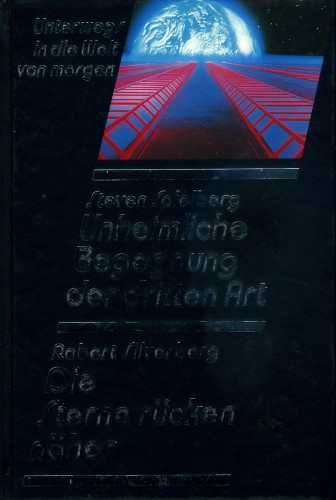 Unterwegs
in die Welt
von morgen
Steven Spielberg
Unheimliche
Begegnung
der dritten Art
Robert Silverberg
Die
Sterne rücken
näher